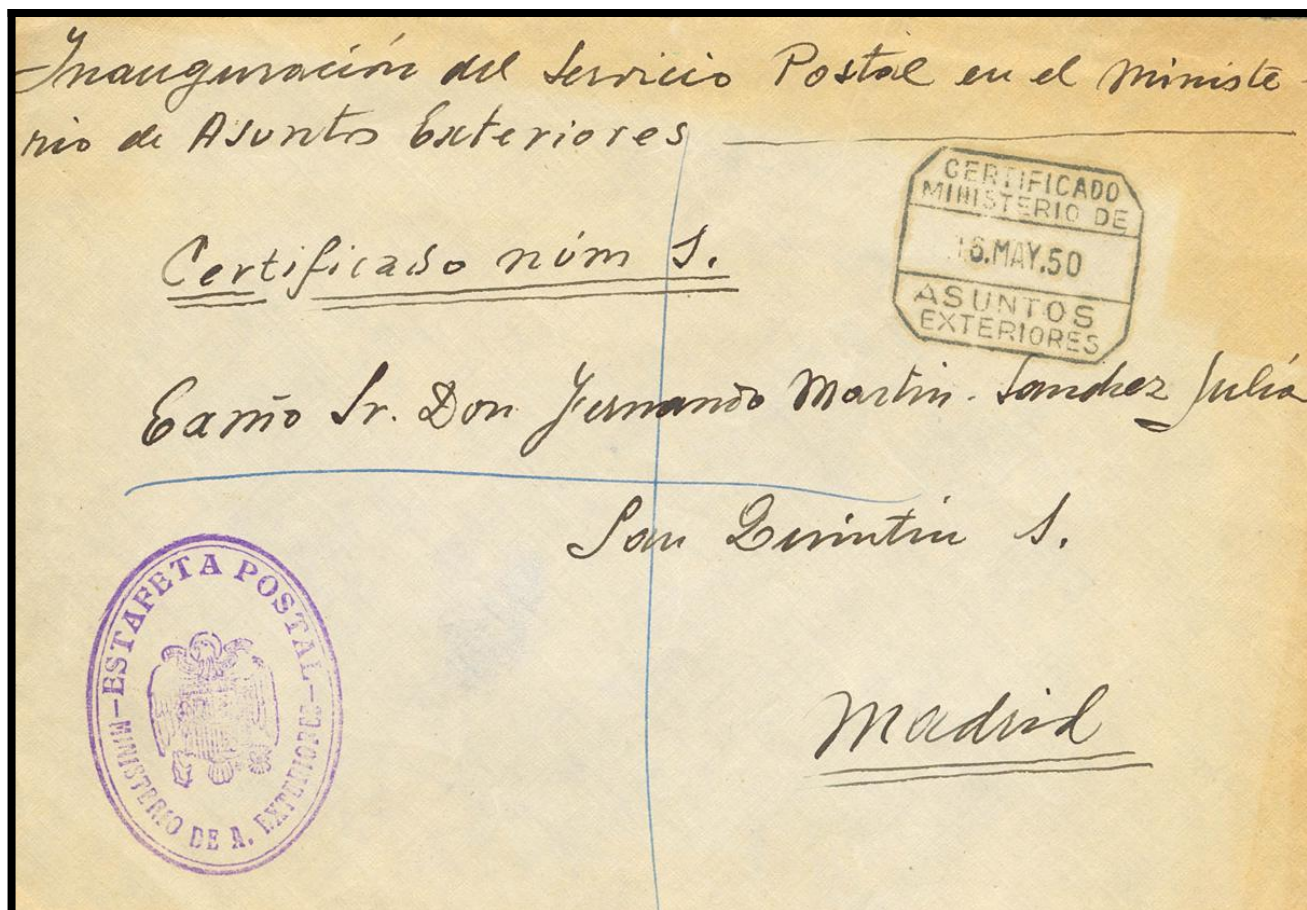 Inauguración del Servicio Postal en el Ministe-
rio de Asuntos Exteriores
CERTIFICADO
MINISTERIO DE
16.MAY.50
ASUNTOS
EXTERIORES
Certificado núm 1.
Exmo Sr. Don Fernando Martin-Sanchez Juliá
San Quintin 1.
Madrid
ESTAFETA POSTAL
MINISTERIO DE A. EXTERIORES